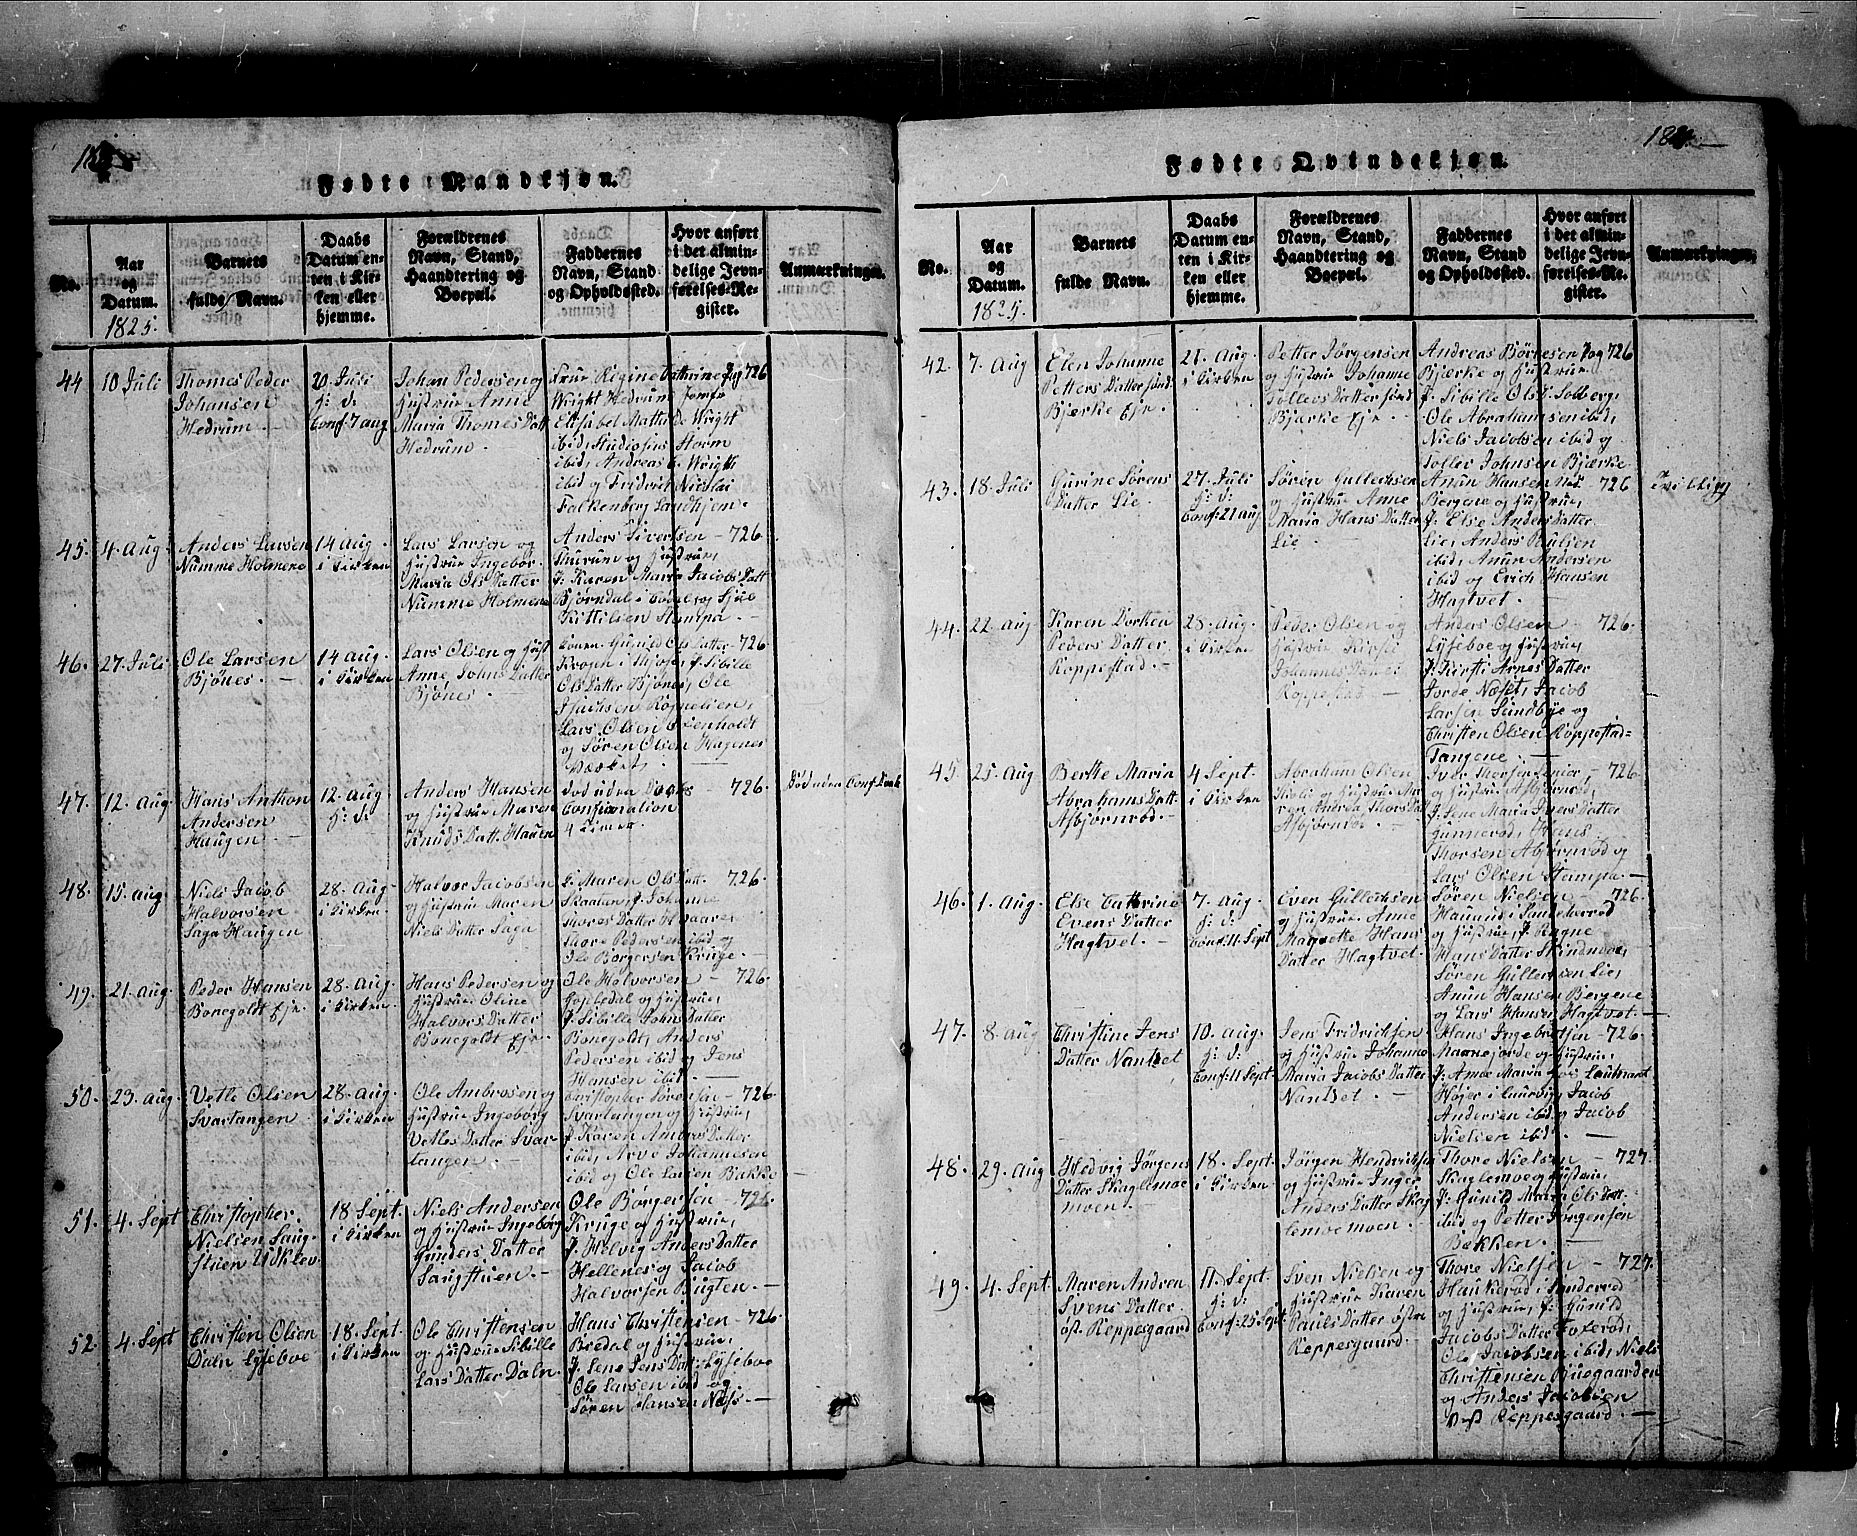 Fødte Mandkjøn.
No.
Aar
og
Datum.
1825.
Barnets
fulde Navn.
Daabs
Datum en-
ten i Kir-
ken eller
hjemme.
Forældrenes
Navn, Stand,
Haandtering og
Boepæl.
Faddernes
Navn, Stand
og Opholdssted.
Hvor anført
i det almin-
delige Jevn-
førelses-Re-
gister.
Anmærkninger.
44
10 Juli
Thomes Peder
Johansen
Hedrum. —
20 Juli
h: d:
Conf: 7 aug
Johan Pedersen og
hustrue Anne
Maria Thomes Datt
Hedrum.
Frue Regine Cathrine
Wright Hedrum
Elisabet Wright
ibid, Studiosus Storm
ibid, Andreas Wrigth
ibid og Fridrich Nicolai
Falkenberg Sandhjem.
726
45.
4 Aug
Anders Larsen
Numme Holmene
14 Aug
i Kirken
Lars Larsen og
hustrue Ingebor
Maria Ols Datter
Numme Holmene
Anders Sivertsen —
og hustrue,
J: Karen Maria Jacobs Datt
Bjørndal i og
Kittilsen Stumpa —
726
46.
27. Juli
Ole Larsen
Bjønes. —
14 aug.
i Kirken
Lars Olsen og hust
Anne Johns Datter
Bjønes —
Konen Gunild Ols Datter —
J. Sibille
Ols Datter Bjønes, Ole
Lars Olsen
og Søren Olsen Hagenes
726
47.
12. Aug
Hans Anthon
Andersen
Haugen —
12. Aug
h: d:
Anders Hansen
og hustrue Maren
Knuds Datt. Hauen
død uden Daabs —
Confirmation
4 Timer —
726.
Død uden Conf: Daab
48.
15. aug
Niels Jacob
Halvorsen
Saga Haugen
28. Aug
i Kirken
Halvor Jacobsen
og hustrue Maren
Niels Datter Saga
J. Maren Ols Datt.
Skaatan, J. Johanne
Thores Datter Hvaare,
Thore Pedersen ibid og
Ole Borgersen Kruge. —
726.
49.
21. Aug
Peder Hansen
Bonegoldt Ejr.
28. Aug.
i Kirken
Hans Pedersen og
hustrue Oline
Halvors Datter
Bonegoldt Ejr
Ole Halvorsen —
og hustrue,
J. Sibille Johns Datter
Bonegoldt, Anders
Pedersen ibid og Jens
Hansen ibid. —
726.
50.
23. aug
Vetle Olsen
Svartangen
28. Aug.
i Kirken
Ole Ambrosen og
hustrue Ingeborg
Vetles Datter Svar-
tangen —
Christopher Sørensen —
Svartangen og hustrue,
J. Karen Ambros Datter
ibid, Arve Johannesen
ibid og Ole Larsen Bakke
726.
51.
4. Sept
Christopher
Nielsen Saug-
stuen Vokslev
18 Sept.
i Kirken
Niels Andersen
og hustrue Ingeborg
Gunders Datter
Saugstuen. —
Ole Borgersen —
Kruge og hustrue,
J. Helvig Anders Datter
Hellenes og Jacob
Halvorsen Bugten. —
726
52
4. Sept
Christen Olsen
Daln Lyseboe
18. Sept.
i Kirken
Ole Christensen
og hustrue Sibille
Lars Datter Daln.
Hans Christensen —
Bredal og hustrue,
J. Lene Jens Datt. Lyseboe
Ole Larsen ibid og
Søren Hansen Næss. —
726.
Fødte Qvindekjøn.
No.
Aar
og
Datum.
1825.
Barnets
fulde Navn.
Daabs
Datum en-
ten i Kir-
ken eller
hjemme.
Forældrenes
Navn, Stand,
Haandtering og
Boepæl.
Faddernes
Navn, Stand
og Opholdssted.
Hvor anført
i det almin-
delige Jevn-
førelses-Re-
gister.
Anmærkninger.
42.
7. Aug
Elen Johanne
Petters Datter
Bjærke Ejr.
21. Aug.
i Kirken
Petter Jørgensen
og hustrue Johanne
Tollevs Datter
Bjærke Ejr
Andreas Børresen
Bjærke og hustrue
J. Sibille Ols D. Solberg,
Ole Abrahamsen ibid,
Niels Jacobsen ibid og
Tollev Johnsen Bjærke
726
43.
18. Juli
Gurine Sørens
Datter Lie.
27 Juli
h: d:
Conf: 21 aug
Søren Gullichsen
og hustrue Anne
Maria Hans Datter
Lie —
Amun Hansen
Bergene og hustrue,
J. Else Anders Datter
Lie, Anders Paulsen
ibid, Amun Andersen
ibid og Erich Hansen
Hagtvet. —
726
Tvilling
44.
22. Aug
Karen Dorthea
Peders Datter
Roppestad. —
28. Aug.
i Kirken
Peder Olsen og
hustrue Kirsti
Johannes Datter
Roppestad —
Anders Olsen —
Lyseboe og hustrue,
J. Kirsti Arnes Datter
Jorde Næset, Jacob
Larsen Sundbye og
Christen Olsen Roppestad-
Tangene. —
726.
45.
25. Aug
Berthe Maria
Abrahams Datt.
Asbjørnrød. —
4 Sept.
i Kirken
Abraham Olsen
og hustrue Ma-
ren Andrea Thors Datt
Asbjørnrød. —
Iver Thorsen Senior, —
og hustrue Asbjørnrød,
J. Lene Maria Ivers Datter
Gunnerød, Hans
Thorsen Asbjørnrød og
Lars Olsen Stumpa —
726.
46.
1. Aug.
Else Cathrine
Evens Datter
Hagtvet. —
7. Aug.
h: d:
Conf: 11. Sept
Even Gullichsen
og hustrue Anne
Margrette Hans
Datter Hagtvet.
Søren Nielsen —
Haug i Sandeherred
og hustrue, J. Ragne
Hans Datter Skindmoe,
Søren Gullichsen Lie,
Amun Hansen Bergene
og Lars Hansen Hagtvet. —
726.
47.
8. aug
Christine Jens
Datter Nanset
10. aug.
h: d:
Conf: 11 Sept.
Jens Fridrichsen
og hustrue Johanne
Maria Jacobs Datter
Nanset. —
Hans Ingebretsen —
og hustrue,
J. Anne Maria Lautnant
Høyer i Laurvig, Jacob
Andersen ibid og Jacob
Nielsen ibid. —
726.
48.
29. Aug
Hedvig Jørgens
Datter Skaglemoe
moen. —
18. Sept.
i Kirken
Jørgen Hendrichsen
og hustrue Inger
Anders Datter Skag
lemoe moen —
Thore Nielsen —
Skaglemoe og hustrue,
J. Gunild Maria Ols Datt.
ibid og Petter Jørgensen
Bækken. —
727.
49.
4. Sept
Maren Andrea
Svens Datter
øst. Reppesgaard
11. Sept.
h: d:
Conf: 25 Sept.
Sven Nielsen og
hustrue Karen
Pauls Datter østre
Reppesgaard.
Thore Nielsen —
Haukerød i Sanderød
og hustrue, J. Gunild
Jacobs Datter Foxerød,
Ole Jacobsen ibid, Niels
Christensen Buegaarden
og Anders Jacobsen
Vest Reppesgaard. —
727.